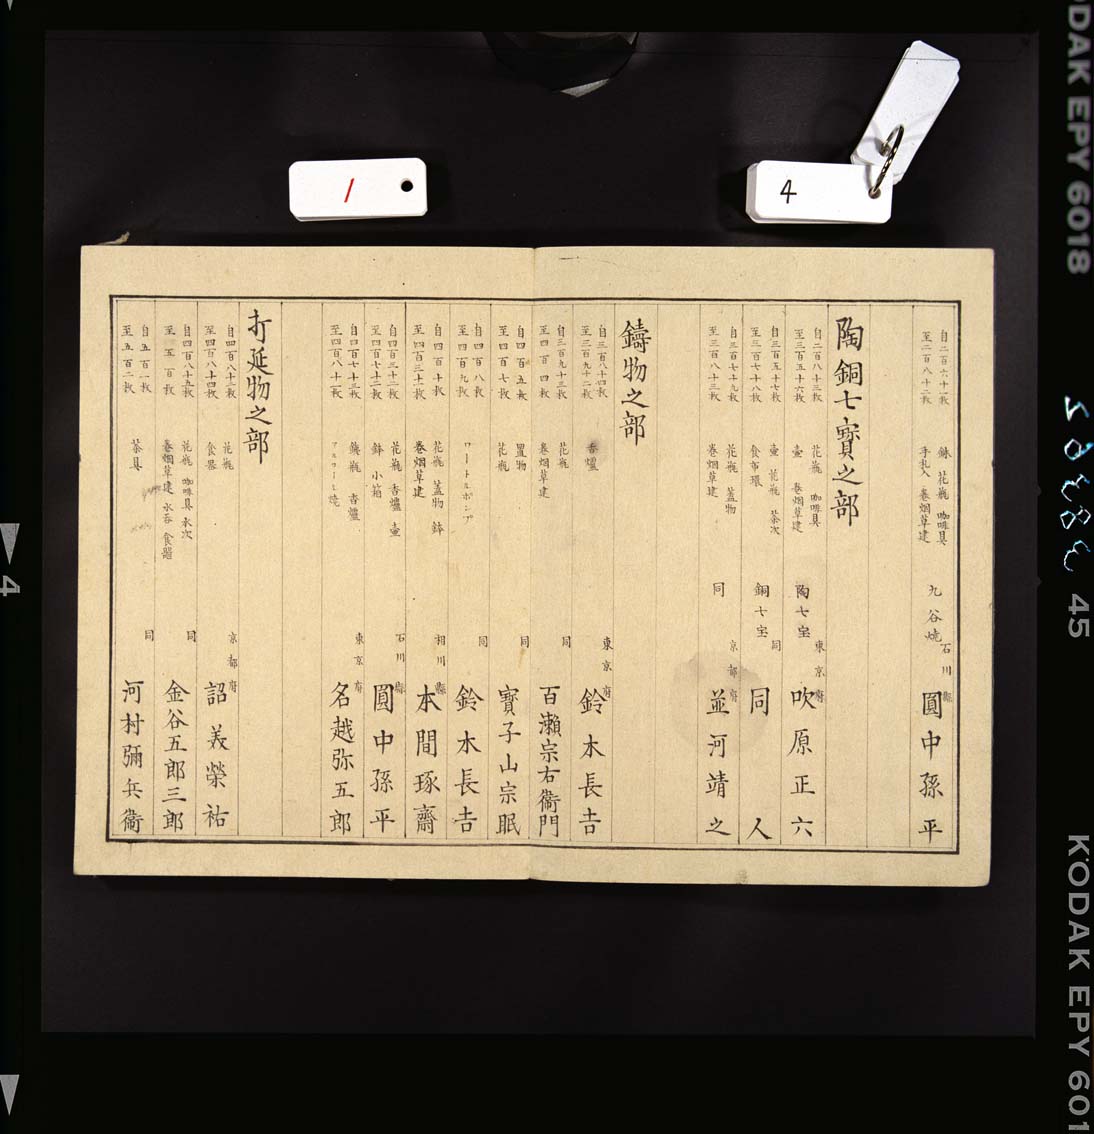 1
4
自二百六十一枚
至二百八十二枚
鉢 花瓶 咖啡具
手札入 巻烟草建
九谷焼
石川縣
圓中孫平
陶銅七寳之部
自二百八十三枚
至三百五十六枚
花瓶 咖啡具
壷 巻烟草建
陶七宝
東京府
吹原正六
自三百五十七枚
至三百七十八枚
壷 花瓶 茶次
食巾環
銅七宝
同
同人
自三百七十九枚
至三百八十三枚
花瓶 蓋物
巻烟草建
同
京都府
並河靖之
鑄物之部
自三百八十四枚
至三百九十二枚
香爐
東京府
鈴木長吉
自三百九十三枚
至四百四枚
花瓶
巻烟草建
同
百瀬宗右衞門
自四百五枚
至四百七枚
置物
花瓶
同
寳子山宗眠
自四百八枚
至四百九枚
ワートルポンプ
同
鈴木長吉
自四百十枚
至四百三十枚
花瓶 蓋物 鉢
巻烟草建
相川縣
本間琢齋
自四百三十二枚
至四百七十二枚
花瓶 香爐 壷
鉢 小箱
石川縣
圓中孫平
自四百七十三枚
至四百八十二枚
鐵瓶 香爐
東京府
名越弥五郎
打延物之部
自四百八十三枚
至四百八十四枚
花瓶
食器
京都府
詔美榮祐
自四百八十五枚
至五百枚
花瓶 咖啡具 水次
巻烟草建 水呑 食器
同
金谷五郎三郎
自五百一枚
至五百二枚
茶具
同
河村彌兵衞
KODAK EPY 6018
45
KODAK EPY 601
4